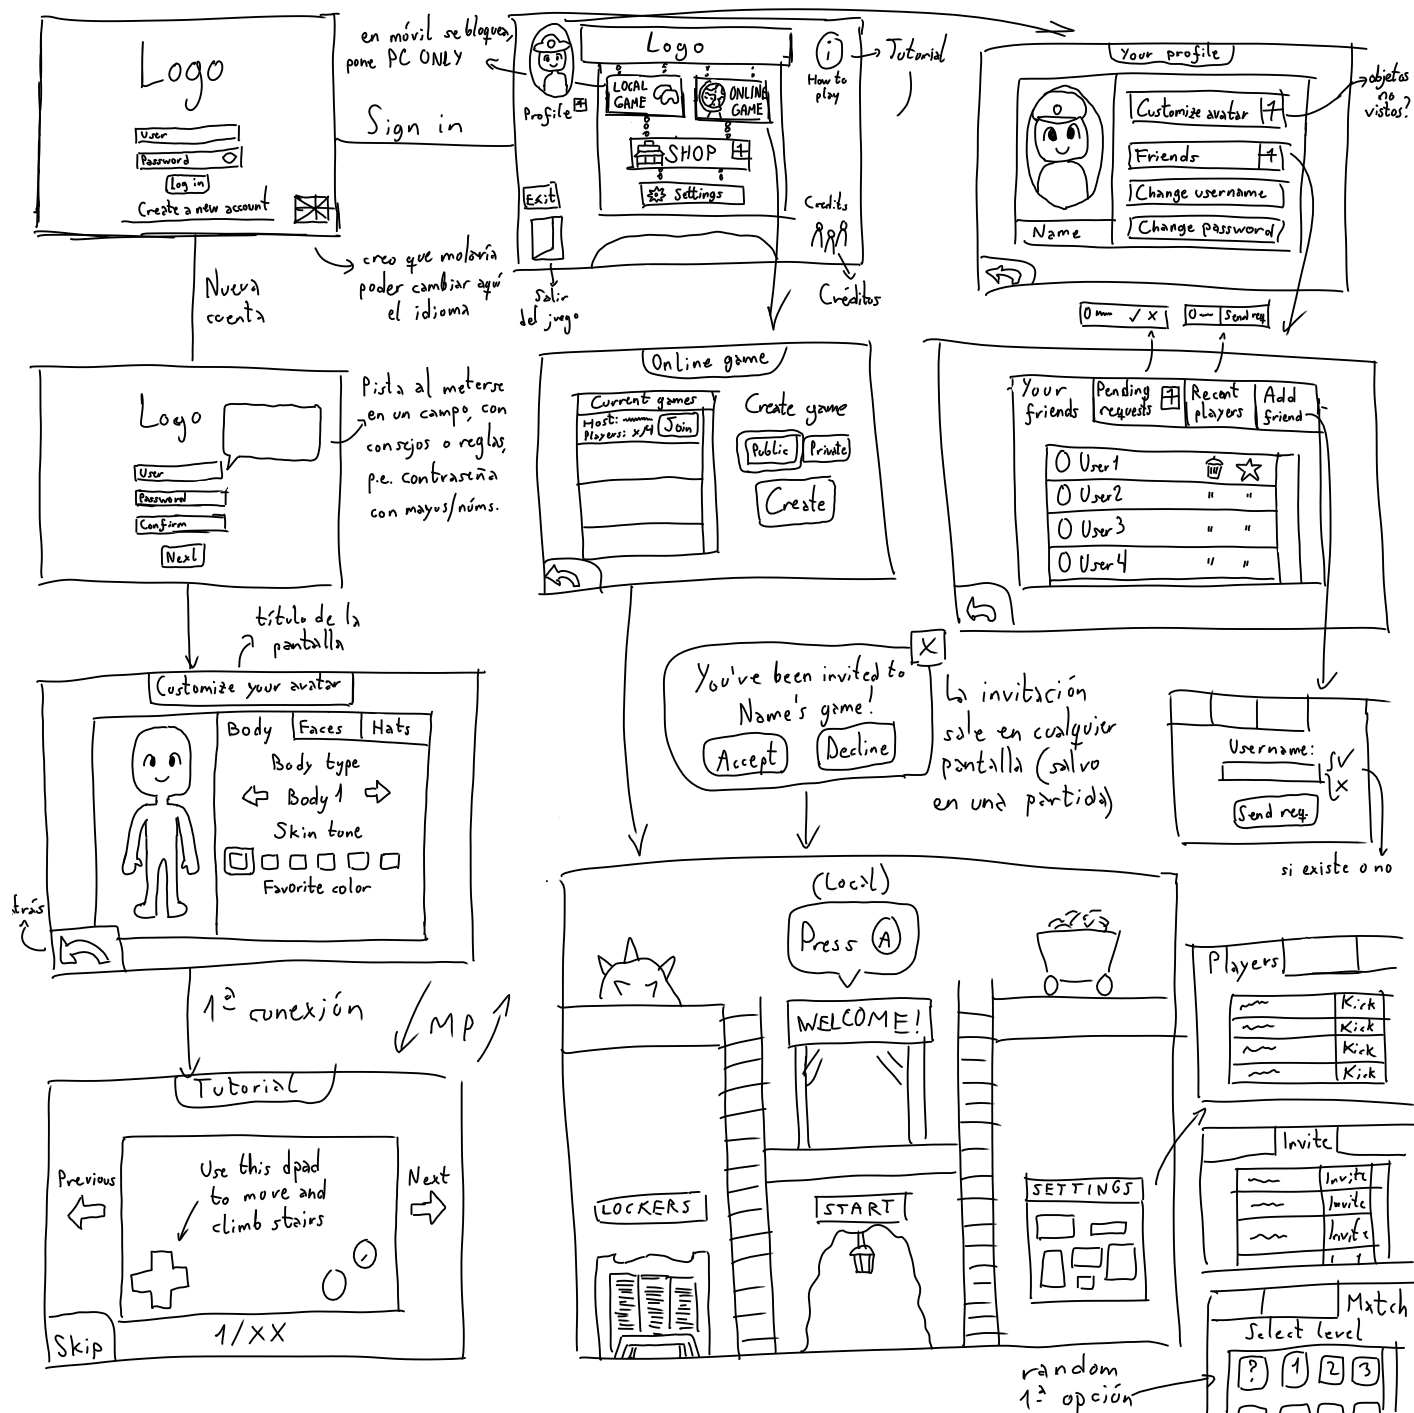 Logo
User
Password
Log in
Create a new account
creo que molaría
poder cambiar aquí
el idioma
Sign in
Nueva
cuenta
en móvil se bloquea,
pone PC ONLY
Logo
LOCAL
GAME
ONLINE
GAME
SHOP
Settings
Profile
Exit
Salir
del juego
i
How to
play
Tutorial
Credits
Créditos
Your profile
Name
Customize avatar
Friends
Change username
Change password
objetos
no
vistos?
Logo
User
Password
Confirm
Next
Pista al meterse
en un campo, con
consejos o reglas,
p.e. contraseña
con mayus/núms.
Online game
Current games
Host:
Players: x/4
Join
Create game
Public
Private
Create
✓ X
Send req
Your
friends
Pending
requests
Recent
players
Add
friend
User1
User2 " "
User3 " "
User4 " "
título de la
pantalla
Customize your avatar
Body
Faces
Hats
Body type
Body 1
Skin tone
Favorite color
atrás
You've been invited to
Name's game!
Accept
Decline
X
La invitación
sale en cualquier
pantalla (salvo
en una partida)
Username:
✓
X
Send req.
si existe o no
1ª conexión
MP
Tutorial
Previous
Next
Use this dpad
to move and
climb stairs
Skip
1/XX
(Local)
Press A
WELCOME!
LOCKERS
START
SETTINGS
Players
Kick
Kick
Kick
Kick
Invite
Invite
Invite
Invite
Match
Select level
? 1 2 3
random
1ª opción